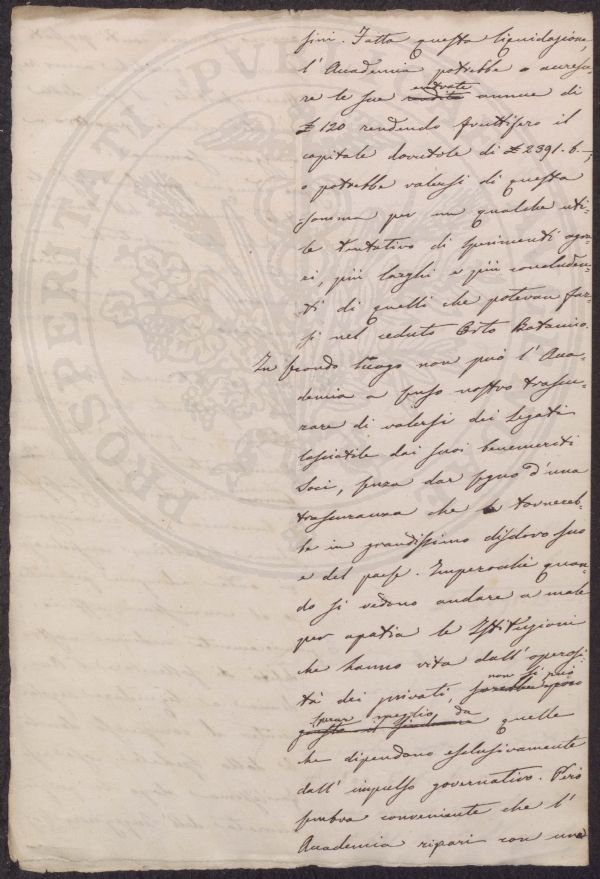 sini. Fatta questa liquidazione,
l'Accademia potrebbe o accresce-
re le sue entrate annue di
£ 120 rendendo fruttifero il
capitale dovutole di £ 2391. 6. –
o potrebbe valersi di questa
somma per un qualche uti-
le tentativo di sperimenti agra-
ri, più larghi e più concluden-
ti di quelli che potevan far-
si nel ceduto Orto Botanico.
In secondo luogo non può l'Acca-
demia a senso nostro trascu-
rare di valersi dei legati
lasciatile dai suoi benemeriti
Soci, senza dar segno d'una
trascuranza che tornereb-
be in grandissimo disdoro suo
e del paese. Imperocchè quan-
do si vedono andare a male
per apatia le Istituzioni
che hanno vita dall'operosi-
tà dei privati, non si può
sperar meglio da quelle
che dipendono esclusivamente
dall'impulso governativo. Però
sembra conveniente che l'
Accademia ripari con una
PROSPERITATI PUBLICAE